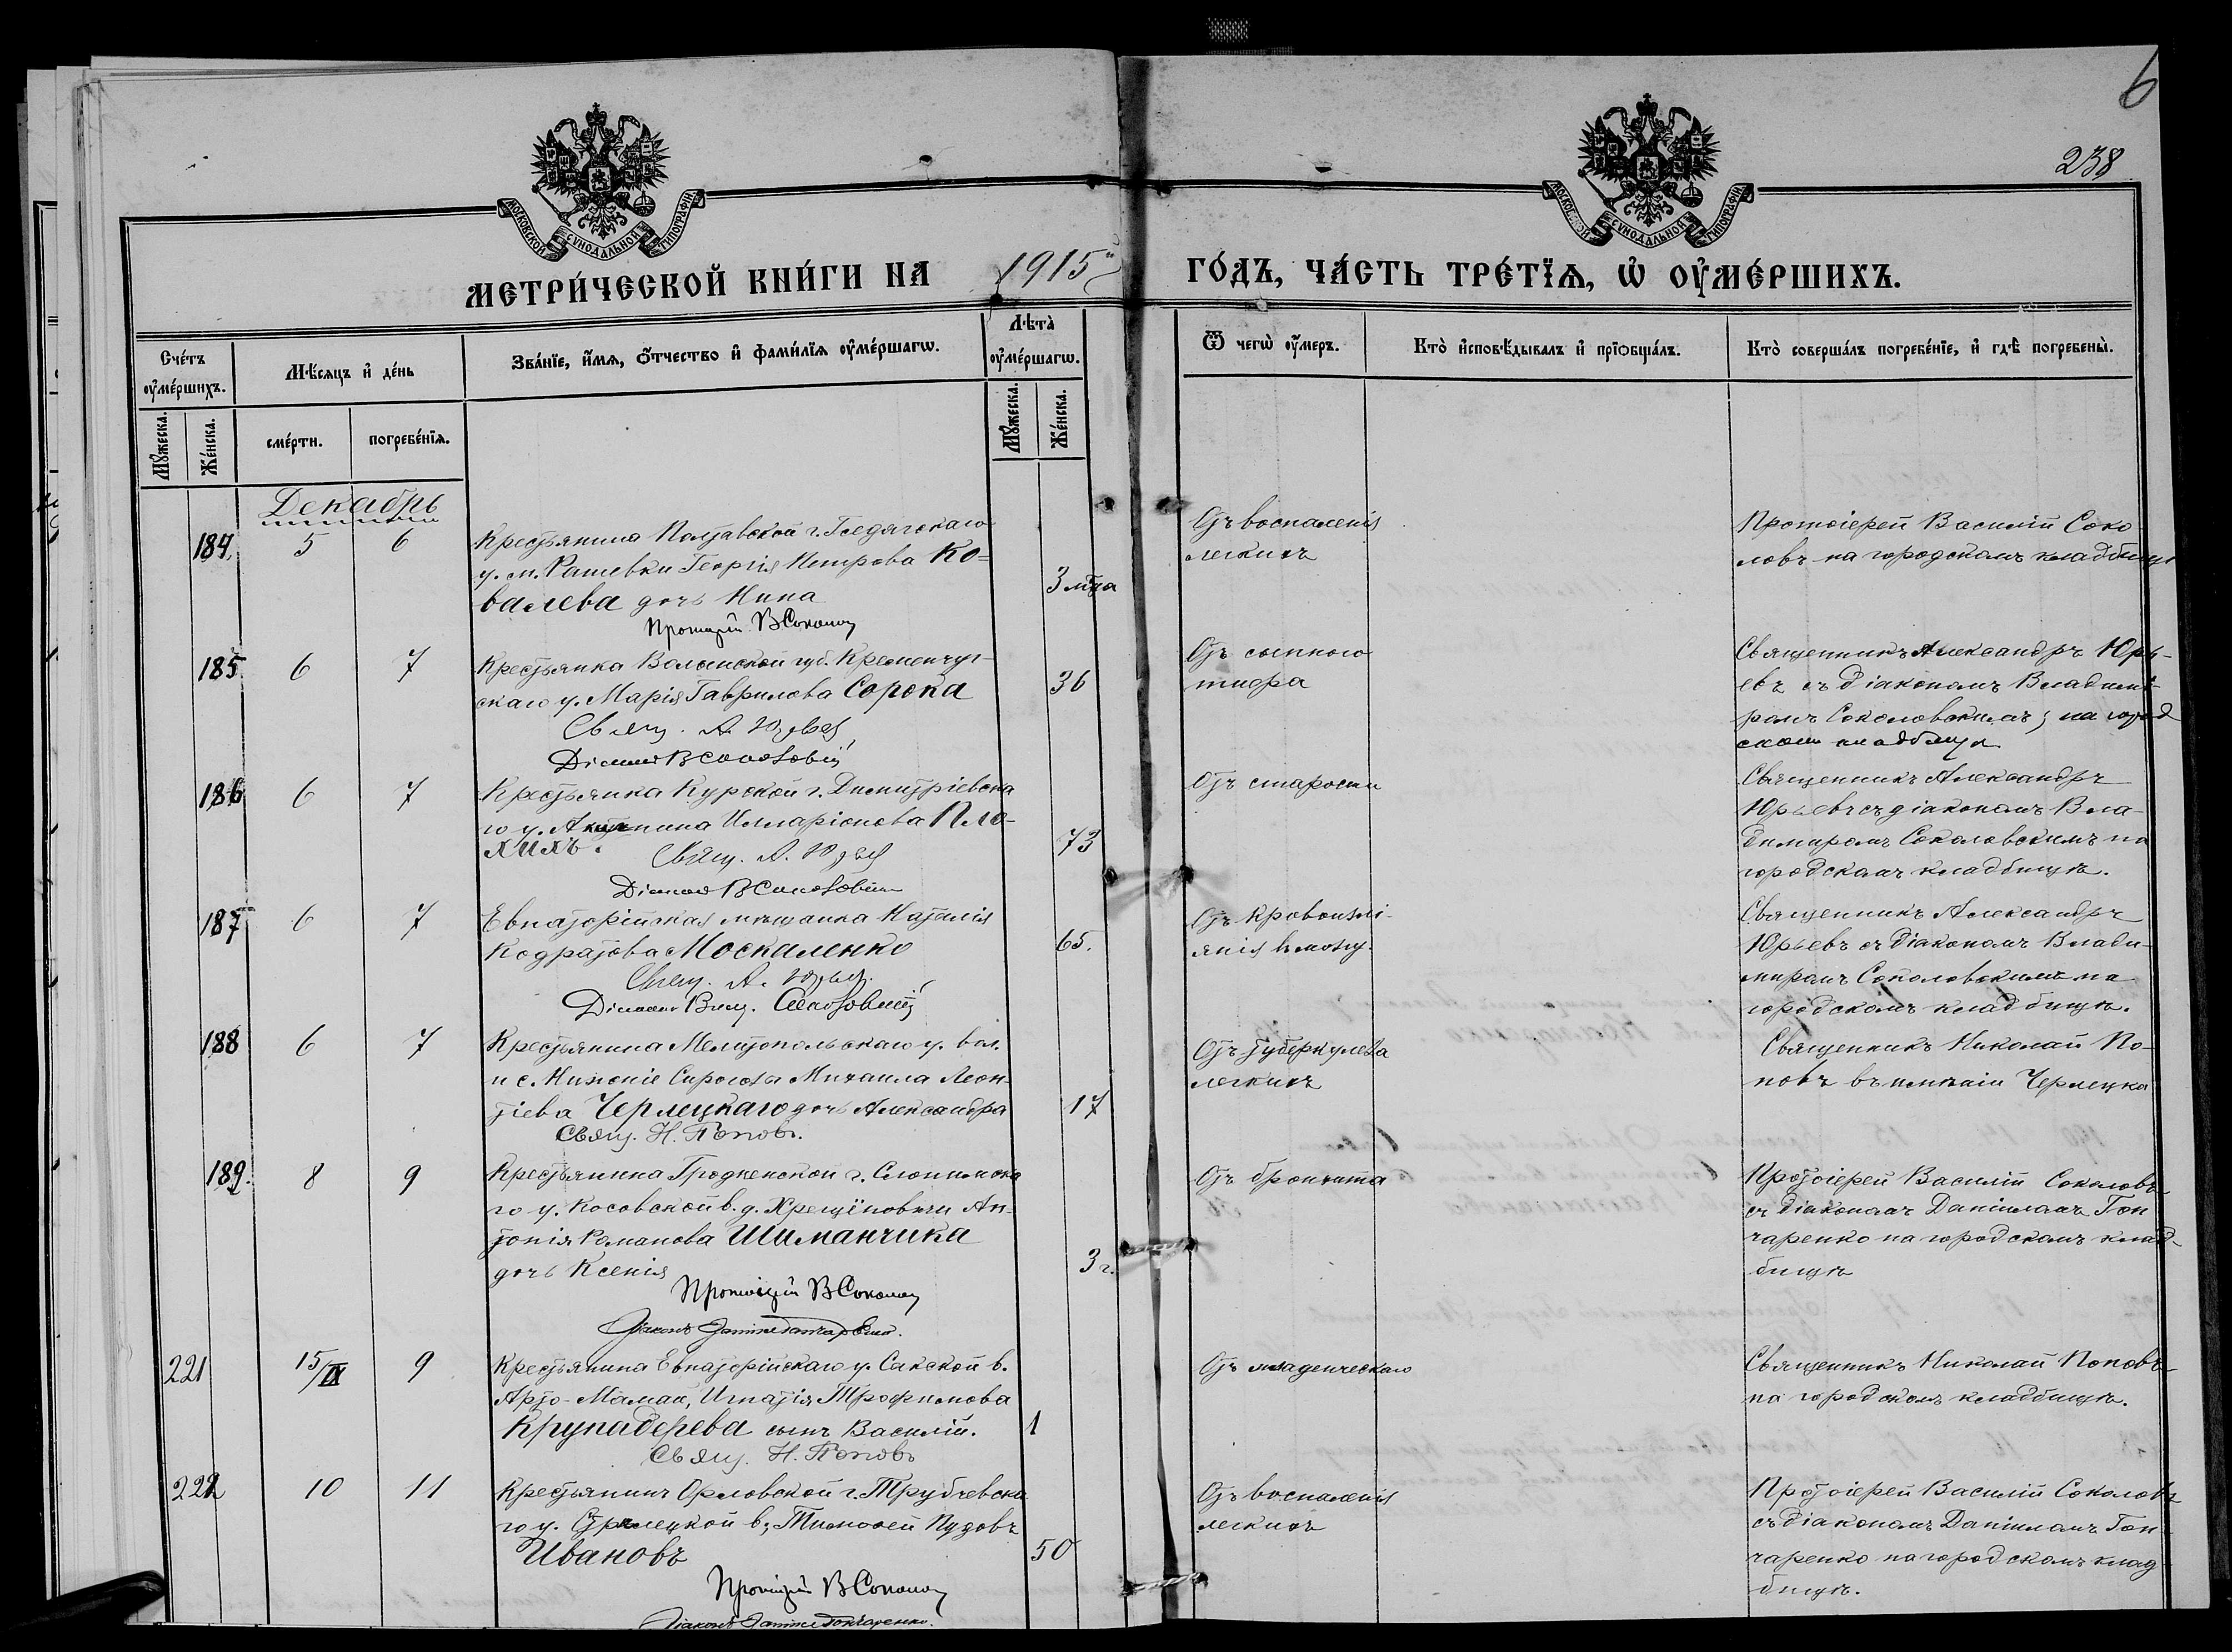 6
238
МОСКОВСКОЙ СУНОДАЛЬНОЙ ТИПОГРАФІИ
МОСКОВСКОЙ СУНОДАЛЬНОЙ ТИПОГРАФІИ
МЕТРИ́ЧЕСКОЙ КНИ́ГИ НА 1915й ГО́ДЪ, ЧА́СТЬ ТРЕ́ТЇѦ, Ѡ҆ ОУ҆МЕ́РШИХЪ.
Сче́тъ оу҆ме́ршихъ.
Мꙋ́жеска.
Же́нска.
Мѣ́сяцъ и҆ де́нь
сме́рти.
погребе́нїѧ.
Зва́нїе, и҆́мѧ, ѻ҆́тчество и҆ фами́лїѧ оу҆ме́ршагѡ.
Лѣ̑та̀ оу҆ме́ршагѡ.
Мꙋ́жеска.
Же́нска.
Ѿ чегѡ̀ оу҆́меръ.
Кто̀ и҆сповѣ́дывалъ и҆ прїѡбща́лъ.
Кто̀ соверша́лъ погребе́нїе, и҆ гдѣ̀ погребены̀.
Декабрь
184. 5 6
Крестьянина Полтавской г. Гадячскаго
у. м. Рашевки Георгія Петрова Ко-
валева дочь Нина
3 мѣца
Протоіерей В Соколов
Отъ воспаленія
легкихъ
Протоіерей Василій Соко
ловъ на городскомъ кладбищѣ
185 6 7
Крестьянка Волынской губ. Кременчуг-
скаго у. Марія Гаврилова Сорока
36
Свящ. А. Юрьев
Діакон В Соколовскій
Отъ сыпного
тифа
Священникъ Александръ Юрь-
евъ съ діакономъ Владимі-
ромъ Соколовскимъ, на город
скомъ кладбищѣ
186 6 7
Крестьянка Курской г. Дмитріевска
го у. Иларіонова Пло-
хихъ.
73
Свящ. А. Юрьев
Діакон В Соколовскій
Отъ старости
Священникъ Александръ
Юрьевъ съ діакономъ Вла-
димиромъ Соколовскимъ на
городскомъ кладбищѣ.
187 6 7
Евпаторійская мѣщанка Наталія
Кодратова Москаленко
65.
Свящ. А. Юрьев.
Діакон Влад. Соколовскій
Отъ кровоизлі-
янія въ мозгу.
Священникъ Александръ
Юрьевъ съ діакономъ Влади-
миромъ Соколовскимъ на
городскомъ кладбищѣ.
188 6 7
Крестьянина Мелитопольскаго у. вол.
и с. Нижніе Сирогозы Михаила Леон-
тіева Черлецкаго дочь Александра
17
Свящ. Н. Попов.
Отъ туберкулеза
легкихъ
Священникъ Николай По-
повъ въ имѣніи Черлецка
189. 8 9
Крестьянина Гродненской г. Слонимска
го у. Косовской в. д. Хрещїновичи Ан-
тонія Романова Шиманчика
дочь Ксенія
3 г.
Протоіерей В Соколов
Діаконъ Даніилъ Гончаренко.
Отъ бронхита
Протоіерей Василій Соколовъ
съ діакономъ Даніиломъ Гон
чаренко на городскомъ клад-
бищѣ
221 15/IX 9
Крестьянина Евпаторійскаго у. Сакской в.
Арто-Мамай, Игнатія Трофимова
Крупадерева сынъ Василій.
1
Свящ. Н. Поповъ
Отъ младенческаго
Священникъ Николай Поповъ
на городскомъ кладбищѣ.
222 10 11
Крестьянинъ Орловской г. Трубчевска
го у. Стрелецкой в., Тимофей Пудовъ
Ивановъ
50
Протоіерей В Соколов
Діаконъ Даніилъ Гончаренко.
Отъ воспаленія
легкихъ
Протоіерей Василій Соколовъ
съ діакономъ Даніиломъ Гон
чаренко на городскомъ клад
бищѣ.